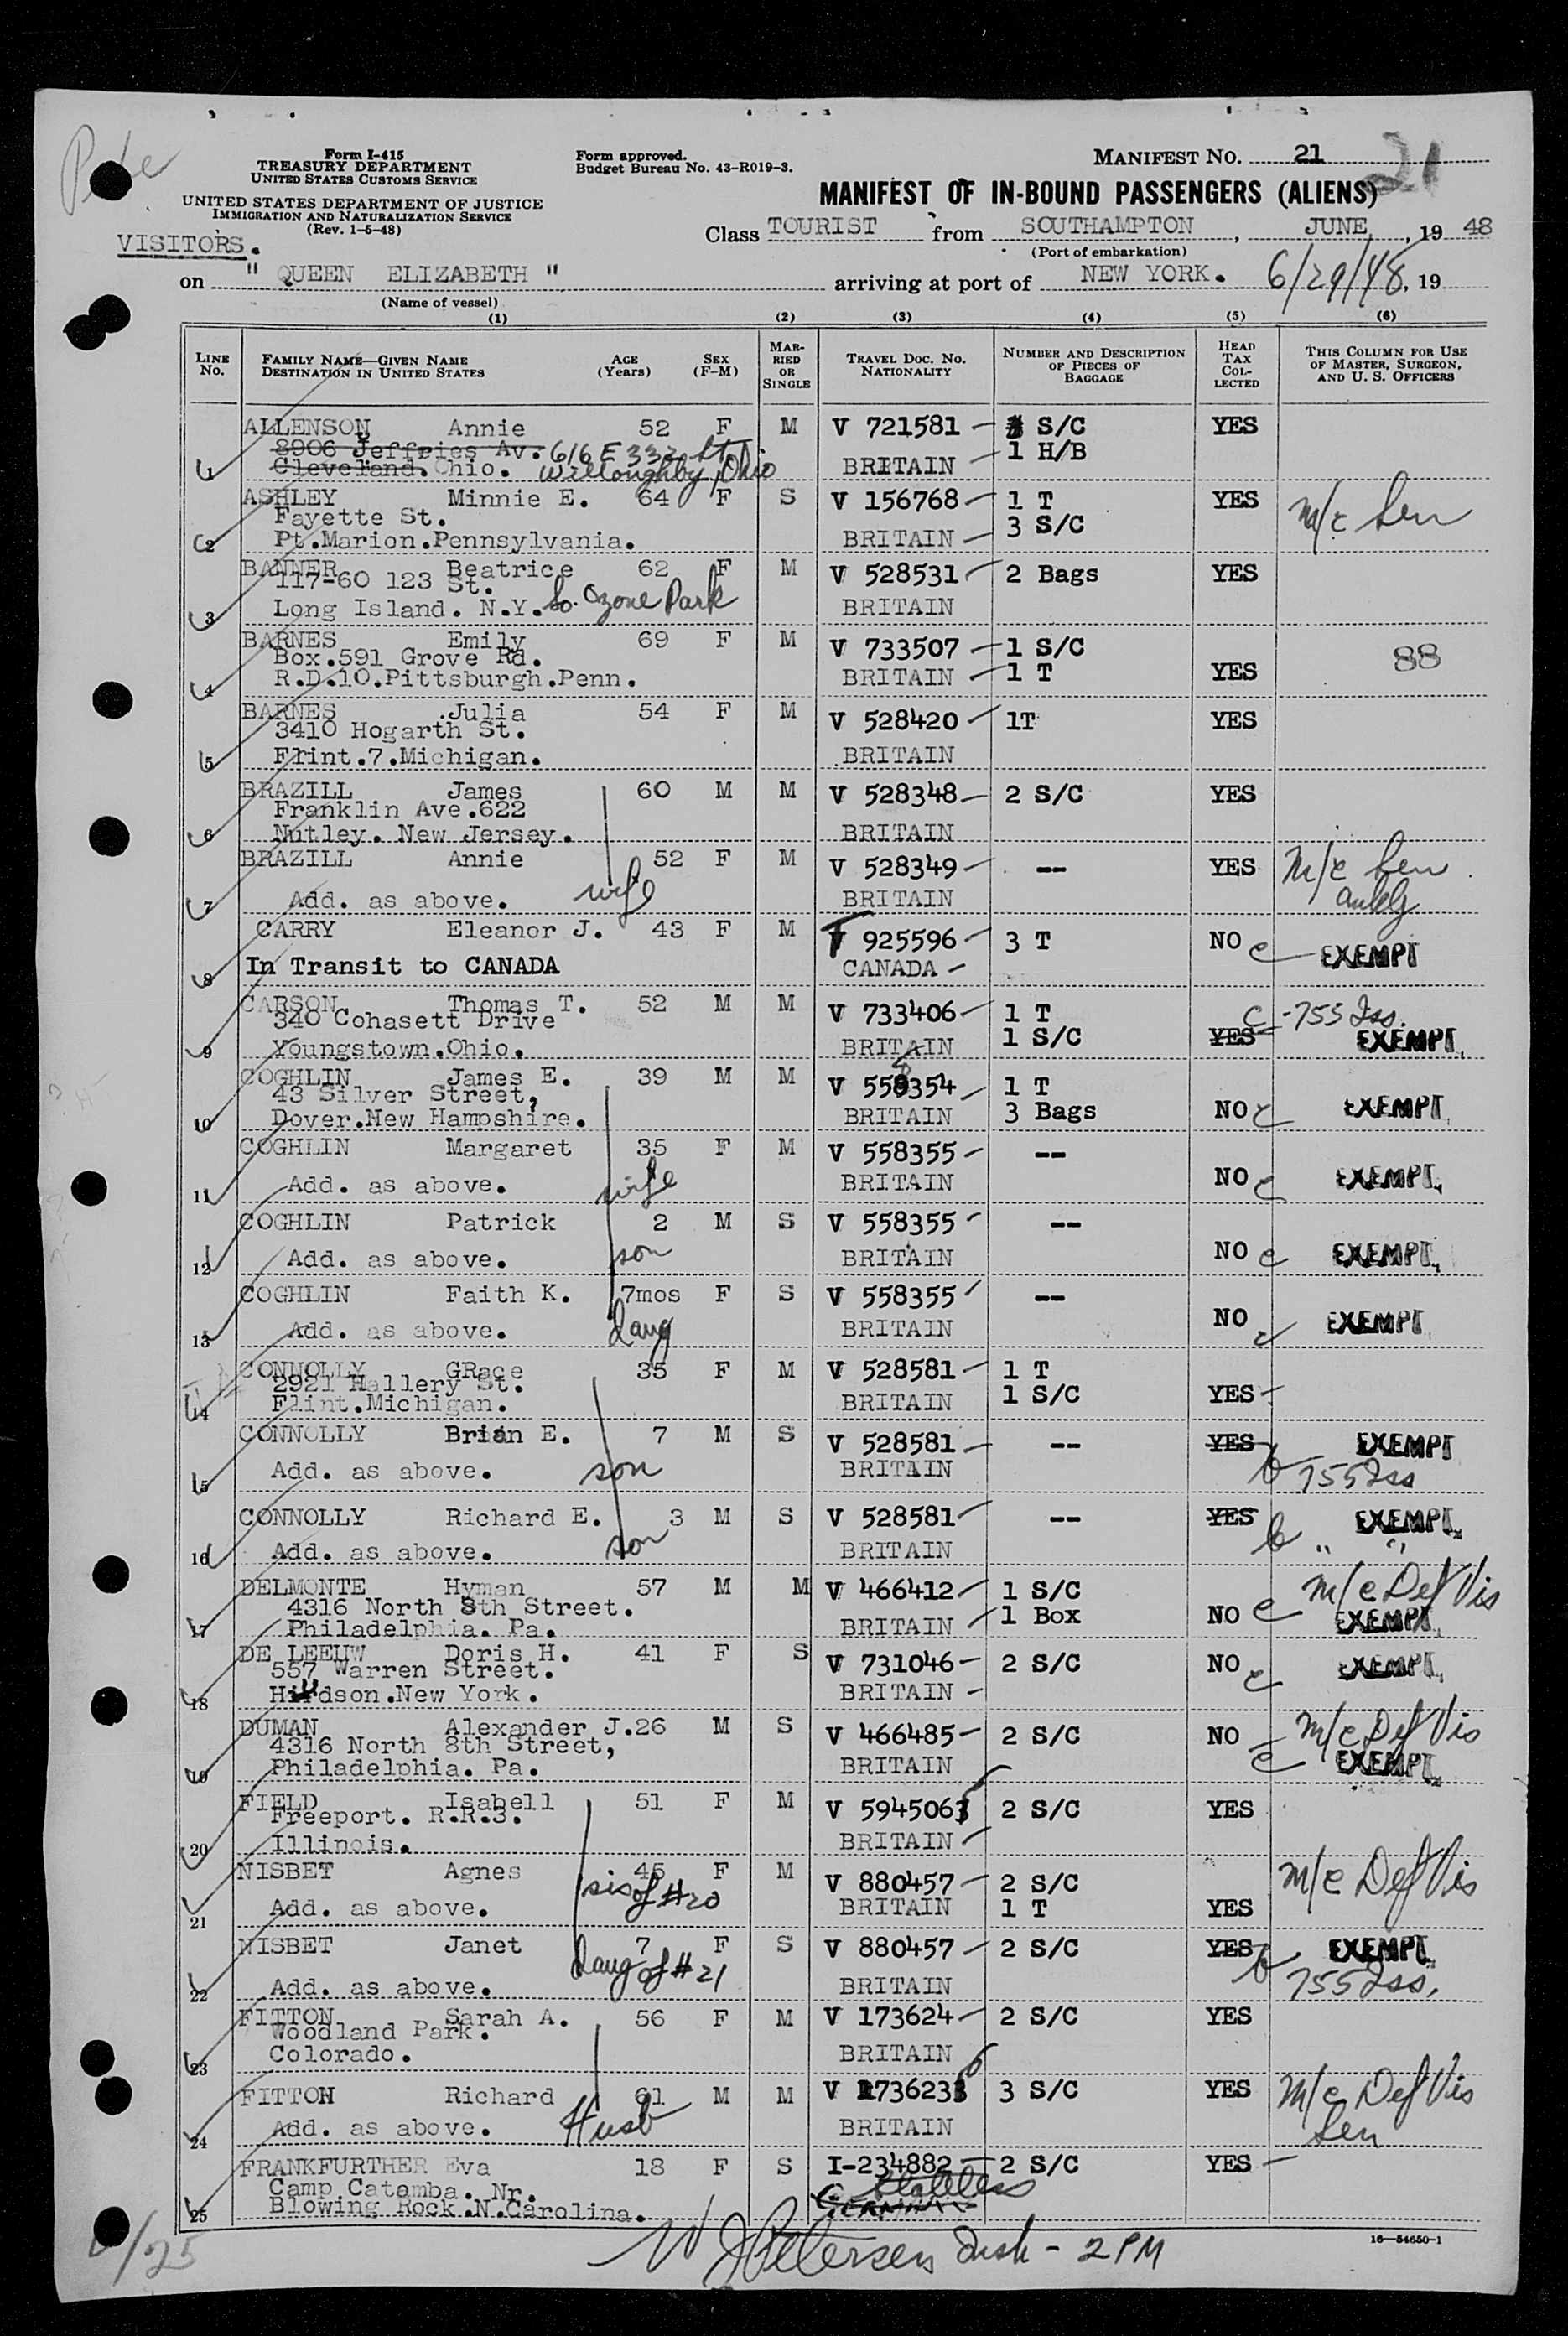 Form I-415
TREASURY DEPARTMENT
UNITED STATES CUSTOMS SERVICE
UNITED STATES DEPARTMENT OF JUSTICE
IMMIGRATION AND NATURALIZATION SERVICE
(Rev. 1-5-48)
Form approved.
Budget Bureau No. 43-R019-3.
MANIFEST NO. 21
21
MANIFEST OF IN-BOUND PASSENGERS (ALIENS)
VISITORS.
Class TOURIST from SOUTHAMPTON, JUNE, 19 48
(Port of embarkation)
on "QUEEN ELIZABETH" arriving at port of NEW YORK. 6/29/48, 19
(Name of vessel)
(1) (2) (3) (4) (5) (6)
LINE No. FAMILY NAME—GIVEN NAME DESTINATION IN UNITED STATES AGE (Years) SEX (F-M) MARRIED OR SINGLE TRAVEL DOC. NO. NATIONALITY NUMBER AND DESCRIPTION OF PIECES OF BAGGAGE HEAD TAX COLLECTED THIS COLUMN FOR USE OF MASTER, SURGEON, AND U. S. OFFICERS
ALLENSON Annie 52 F M V 721581 S/C YES
8906 Jeffries Av. 616 E 332 St. 1 H/B
1 Cleveland. Ohio. Willoughby, Ohio BRITAIN
ASHLEY Minnie E. 64 F S V 156768 1 T YES m/c Sen
Fayette St. 3 S/C
2 Pt.Marion.Pennsylvania. BRITAIN
BANNER Beatrice 62 F M V 528531 2 Bags YES
117-60 123 St.
3 Long Island. N.Y. So. Ozone Park BRITAIN
BARNES Emily 69 F M V 733507 1 S/C
Box.591 Grove Rd. 88
4 R.D.10.Pittsburgh.Penn. BRITAIN 1 T YES
BARNES Julia 54 F M V 528420 1T YES
3410 Hogarth St.
5 Flint.7.Michigan. BRITAIN
BRAZILL James 60 M M V 528348 2 S/C YES
Franklin Ave.622
6 Nutley. New Jersey. BRITAIN
BRAZILL Annie 52 F M V 528349 -- YES m/c Sen
7 Add. as above. wife BRITAIN
CARRY Eleanor J. 43 F M V 925596 3 T NO c EXEMPT
8 In Transit to CANADA CANADA
CARSON Thomas T. 52 M M V 733406 1 T c-755 Iss.
340 Cohasett Drive
9 Youngstown.Ohio. BRITAIN 1 S/C YES EXEMPT
COGHLIN James E. 39 M M V 558354 1 T
43 Silver Street,
10 Dover.New Hampshire. BRITAIN 3 Bags NO c EXEMPT
COGHLIN Margaret 35 F M V 558355 --
11 Add. as above. wife BRITAIN NO c EXEMPT
COGHLIN Patrick 2 M S V 558355 --
12 Add. as above. son BRITAIN NO c EXEMPT
COGHLIN Faith K. 7mos F S V 558355 --
13 Add. as above. daug BRITAIN NO c EXEMPT
CONNOLLY GRace 35 F M V 528581 1 T
2921 Mallery St.
14 Flint.Michigan. BRITAIN 1 S/C YES
CONNOLLY Brian E. 7 M S V 528581 -- YES EXEMPT
15 Add. as above. son BRITAIN b 755 Iss
CONNOLLY Richard E. 3 M S V 528581 -- YES EXEMPT
16 Add. as above. son BRITAIN b " "
DELMONTE Hyman 57 M M V 466412 1 S/C m/c Def Vis
4316 North 8th Street.
17 Philadelphia. Pa. BRITAIN 1 Box NO c EXEMPT
DE LEEUW Doris H. 41 F S V 731046 2 S/C NO c EXEMPT
557 Warren Street.
18 Hudson.New York. BRITAIN
DUMAN Alexander J. 26 M S V 466485 2 S/C NO m/c Def Vis
4316 North 8th Street,
19 Philadelphia. Pa. BRITAIN c EXEMPT
FIELD Isabell 51 F M V 594506 2 S/C YES
Freeport. R.R.3.
20 Illinois. BRITAIN
NISBET Agnes 45 F M V 880457 2 S/C m/c Def Vis
21 Add. as above. sis of #20 BRITAIN 1 T YES
NISBET Janet 7 F S V 880457 2 S/C YES EXEMPT
22 Add. as above. daug of #21 BRITAIN b 755 Iss.
FITTON Sarah A. 56 F M V 173624 2 S/C YES
Woodland Park.
23 Colorado. BRITAIN
FITTON Richard 61 M M V 173623 3 S/C YES m/c Def Vis
24 Add. as above. Husb BRITAIN Sen
FRANKFURTHER Eva 18 F S I-234882 2 S/C YES
Camp Catamba. Nr. Stateless
25 Blowing Rock.N.Carolina. GERMAN
W J Petersen Insh - 2 PM
16—54650-1